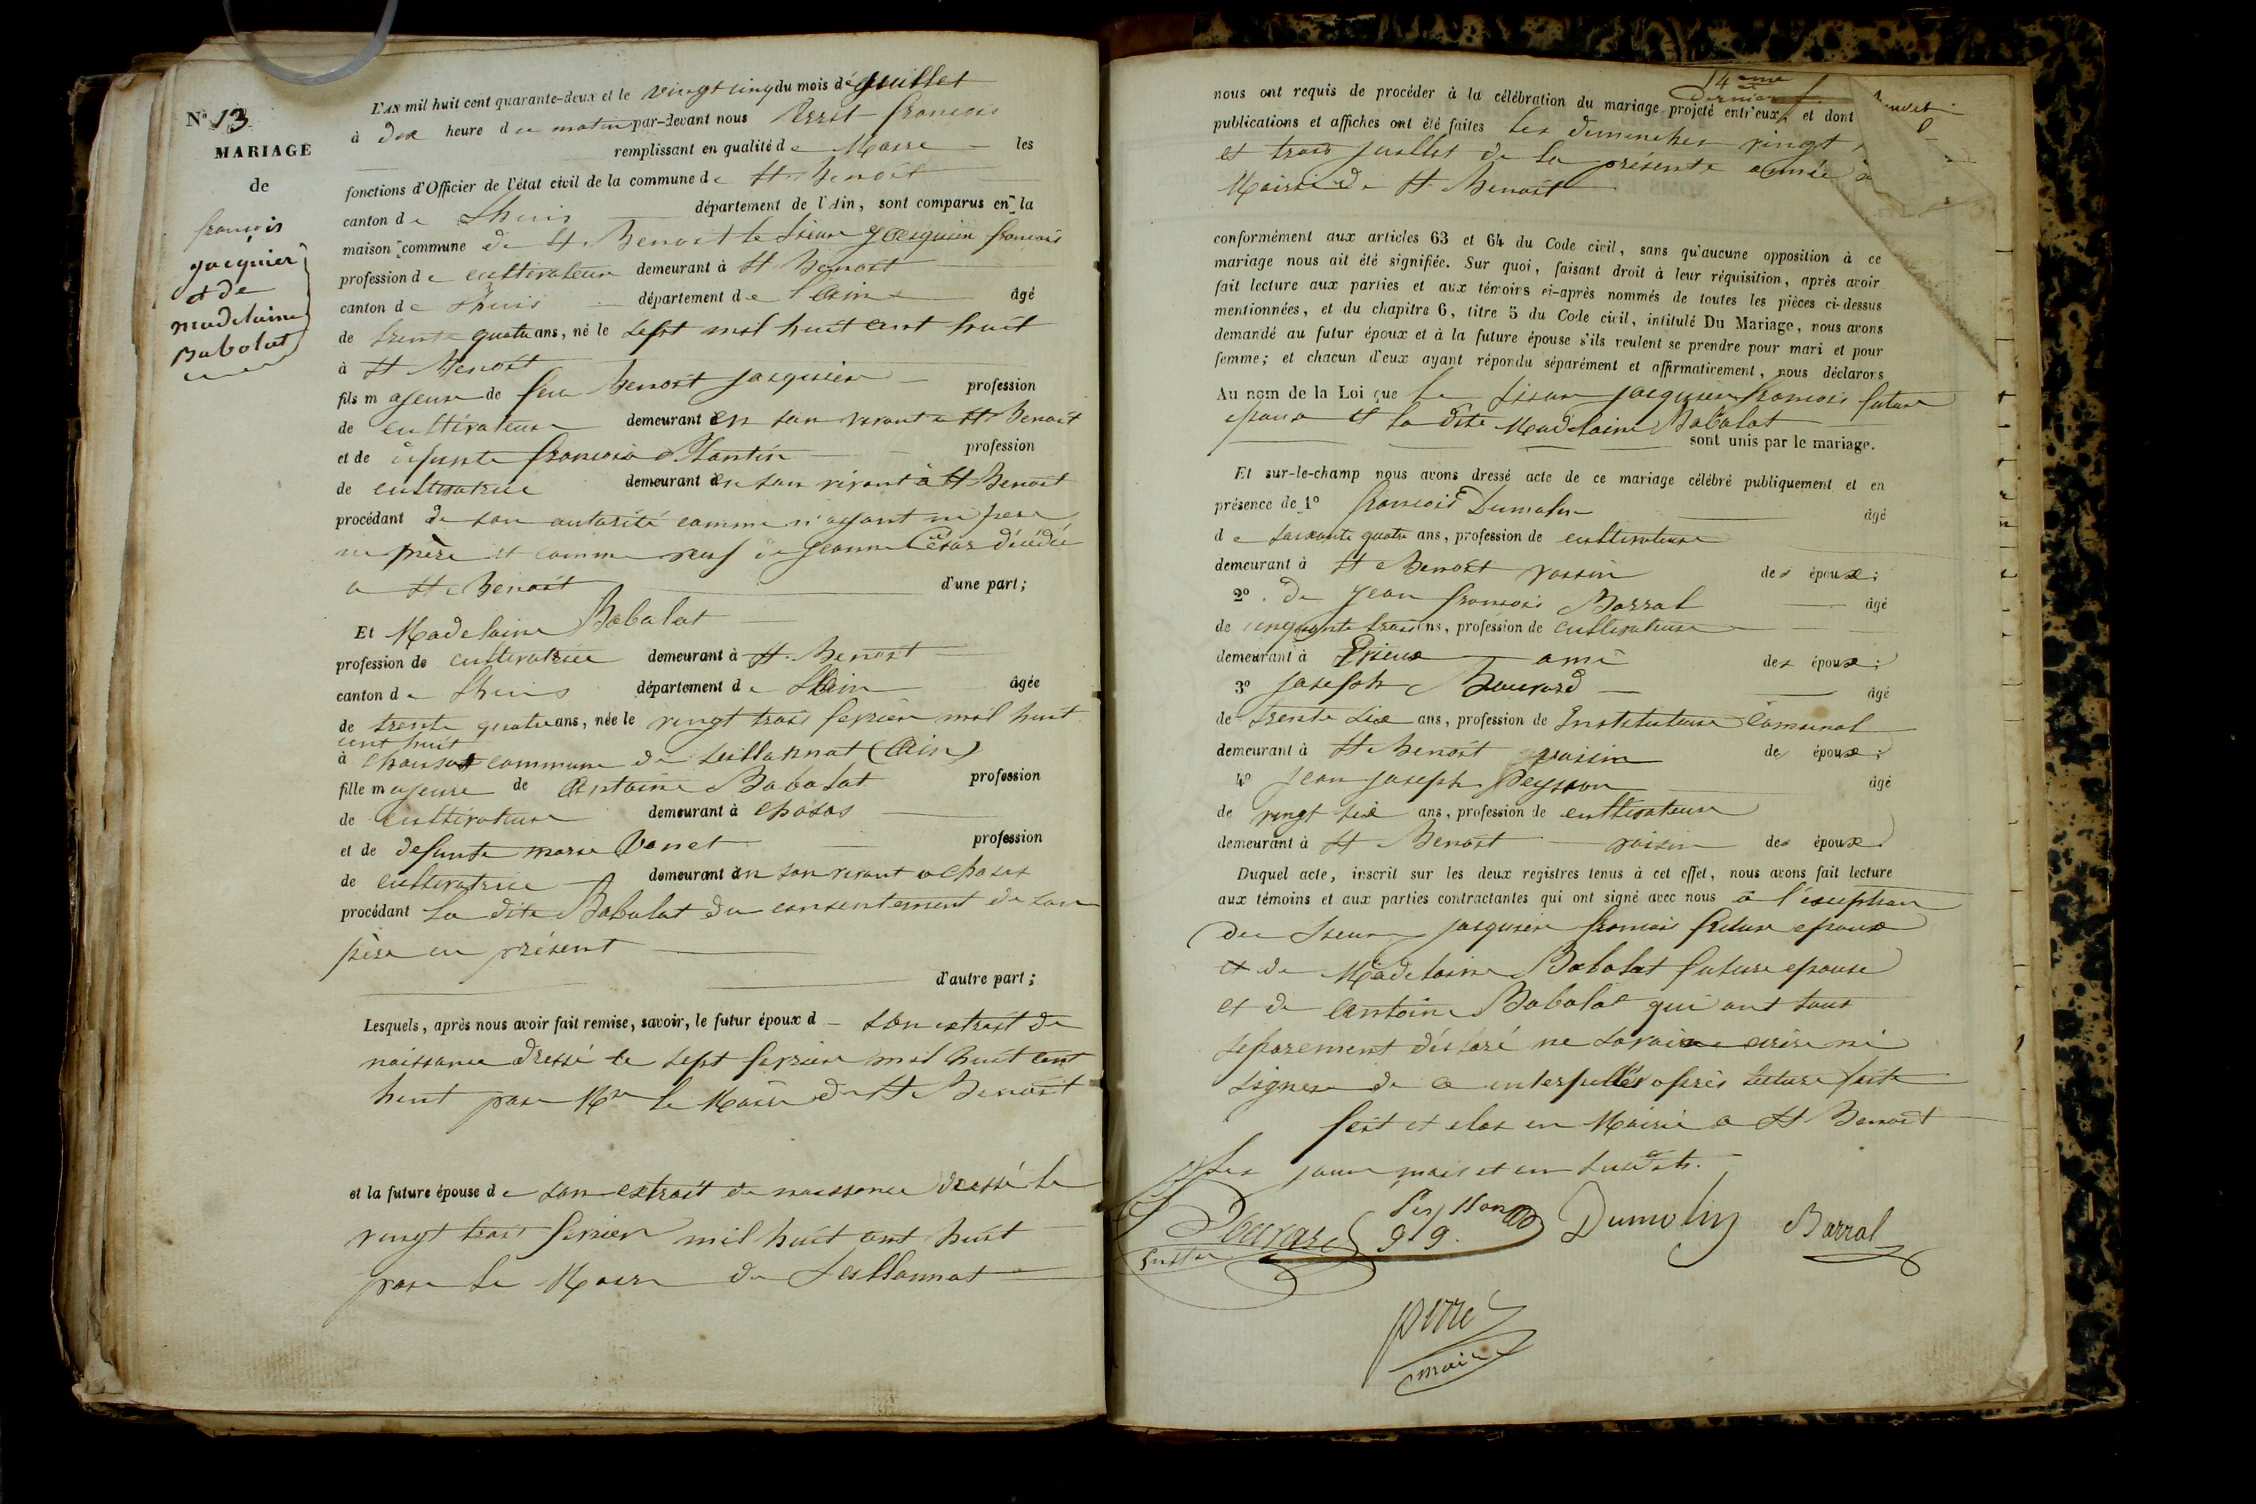 N° 13
MARIAGE
de
françois
jacquier
et de
madelaine
Babolat
L'AN mil huit cent quarante-deux et le vingt cinq du mois de juillet
à dix heure du matin par-devant nous Perret françois
remplissant en qualité de Maire les
fonctions d'Officier de l'état civil de la commune de St Benoît
canton de Lhuis département de l'Ain, sont comparus en la
maison commune de St Benoit le Sieur Jacquier françois
profession de cultivateur demeurant à St Benoit
canton de Lhuis département de l'Ain âgé
de trente quatre ans, né le sept mil huit cent huit
à St Benoit
fils majeur de feu Benoit Jacquier profession
de cultivateur demeurant en son vivant a St Benoit
et de défunte françoise Plantin profession
de cultivatrice demeurant en son vivant à St Benoit
procédant de son autorité comme n'ayant ni pere
ni mère et comme veuf de Jeanne César décédée
a St Benoit d'une part;
Et Madelaine Babolat
profession de cultivatrice demeurant à St Benoit
canton de Lhuis département de l'Ain âgée
de trente quatre ans, née le vingt trois fevrier mil huit
cent huit
à commune de Seillonnat (Ain)
fille majeure de Antoine Babolat profession
de cultivateur demeurant à chosas
et de defunte marie Vanet profession
de cultivatrice demeurant en son vivant a chosas
procédant la dite Babolat du consentement de son
père en présent
d'autre part;
Lesquels, après nous avoir fait remise, savoir, le futur époux d son extrait de
naissance dressé le sept fevrier mil huit cent
huit par Mr le Maire de St Benoit
et la future épouse de son extrait de naissance dressé le
vingt trois fevrier mil huit cent huit
par le Maire de Seillonnat
nous ont requis de procéder à la célébration du mariage projeté entr'eux, et dont
publications et affiches ont été faites les dimenches vingt
et trois juillet de la présente année
Mairie de St Benoit
conformément aux articles 63 et 64 du Code civil, sans qu'aucune opposition à ce
mariage nous ait été signifiée. Sur quoi, faisant droit à leur réquisition, après avoir
fait lecture aux parties et aux témoins ci-après nommés de toutes les pièces ci-dessus
mentionnées, et du chapitre 6, titre 5 du Code civil, intitulé Du Mariage, nous avons
demandé au futur époux et à la future épouse s'ils veulent se prendre pour mari et pour
femme; et chacun d'eux ayant répondu séparément et affirmativement, nous déclarons
Au nom de la Loi que le Sieur Jacquier françois future
epoux et la dite Madelaine Babolat
sont unis par le mariage.
Et sur-le-champ nous avons dressé acte de ce mariage célébré publiquement et en
présence de 1° françois Dumolin âgé
de soixante quatre ans, profession de cultivateur
demeurant à St Benoit voisin des époux;
2° de Jean françois Barral âgé
de cinquante trois ans, profession de cultivateur
demeurant à Prieux ami des époux;
3° Joseph Bouvard âgé
de trente six ans, profession de Instituteur Comunal
demeurant à St Benoit voisin des époux;
4° Jean Joseph Peysson âgé
de vingt six ans, profession de cultivateur
demeurant à St Benoit voisin des époux
Duquel acte, inscrit sur les deux registres tenus à cet effet, nous avons fait lecture
aux témoins et aux parties contractantes qui ont signé avec nous à l'exception
du Sieur Jacquier françois future epoux
et de Madelaine Babolat future epouse
et de Antoine Babolat qui ont tous
séparement déclaré ne savoir écrire ni
signer de ce interpellés après lecture faite
fait et clos en Mairie a St Benoit
les jour mois et an susdits.
Bouvard
Peysson
Dumolin
Barral
perret
maire